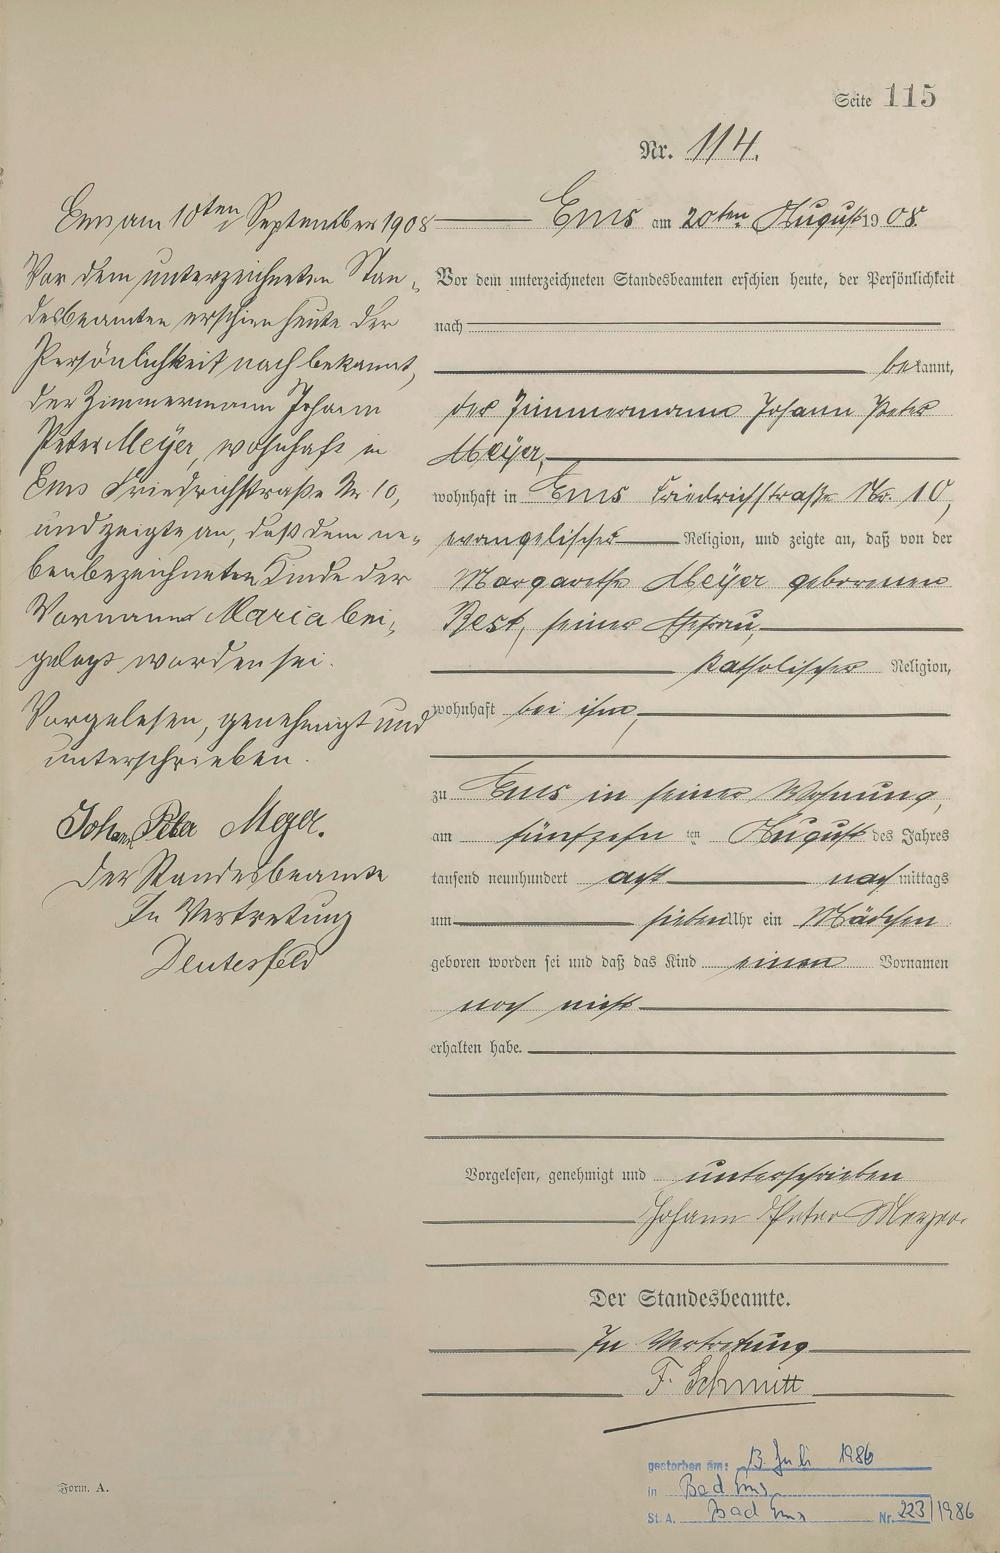 Seite 115
Nr. 114.
Ems am 20ten August 1908.
Vor dem unterzeichneten Standesbeamten erschien heute, der Persönlichkeit
nach
bekannt,
der Zimmermann Johann Peter
Meyer,
wohnhaft in Ems Friedrichstraße Nr. 10,
evangelischer Religion, und zeigte an, daß von der
Margarethe Meyer geborenen
Best, seiner Ehefrau,
katholischer Religion,
wohnhaft bei ihm,
zu Ems in seiner Wohnung,
am fünfzehn ten August des Jahres
tausend neunhundert acht nachmittags
um sieben Uhr ein Mädchen
geboren worden sei und daß das Kind einen Vornamen
noch nicht
erhalten habe.
Vorgelesen, genehmigt und unterschrieben
Johann Peter Meyer.
Der Standesbeamte.
In Vertretung
F. Schmitt
Ems am 10ten September 1908
Vor dem unterzeichneten Stan-
desbeamten erschien heute der
Persönlichkeit nach bekannt,
der Zimmermann Johann
Peter Meyer, wohnhaft in
Ems Friedrichstraße Nr. 10,
und zeigte an, daß dem ne-
benbezeichneten Kinde der
Vorname Maria bei-
gelegt worden sei.
Vorgelesen, genehmigt und
unterschrieben.
Johann Peter Meyer.
Der Standesbeamte
In Vertretung
Deutesfeld
gestorben am: 13. Juli 1986
in Bad Ems
St. A. Bad Ems Nr. 223/1986
Form. A.